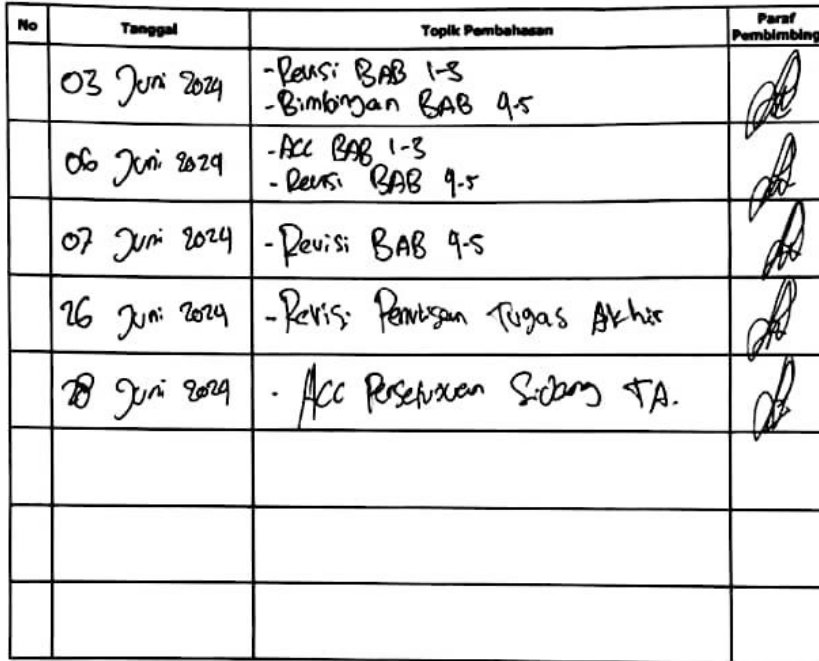 No Tanggal Topik Pembahasan Paraf Pembimbing
03 Juni 2024 -Revisi BAB 1-3
-Bimbingan BAB 4-5
06 Juni 2024 -Acc BAB 1-3
-Revisi BAB 4-5
07 Juni 2024 -Revisi BAB 4-5
26 Juni 2024 -Revisi Penulisan Tugas Akhir
28 Juni 2024 - Acc Persetujuan Sidang TA.